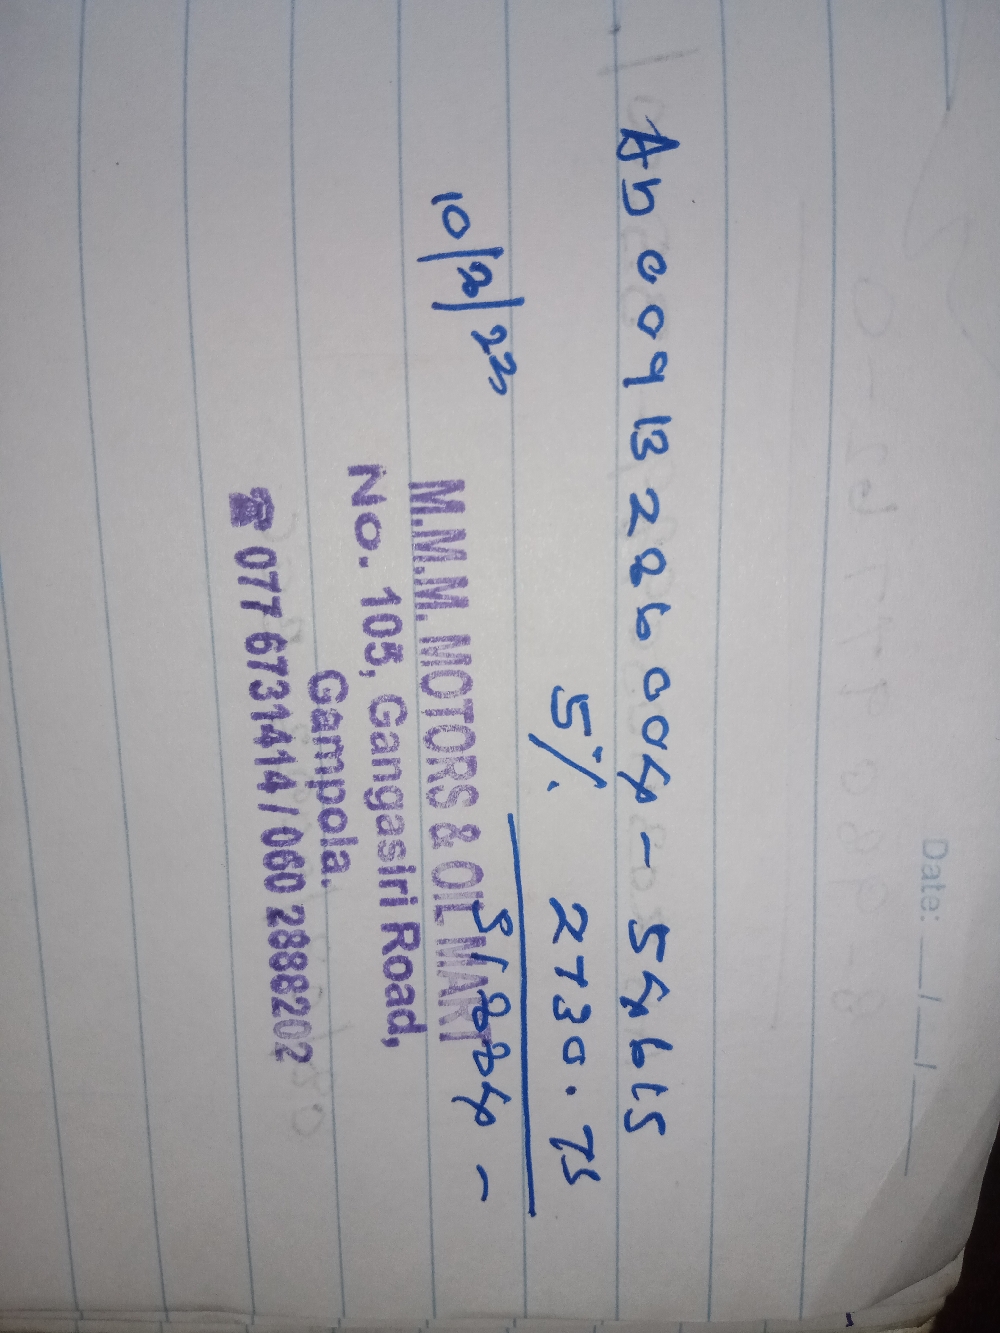 Date: __/__/__
Ab 00913226004 - 54615
5% 2730.75
51884 -
M.M.M. MOTORS & OIL MART
No. 105, Gangasiri Road,
Gampola.
☎ 077 6731414 / 060 2888202